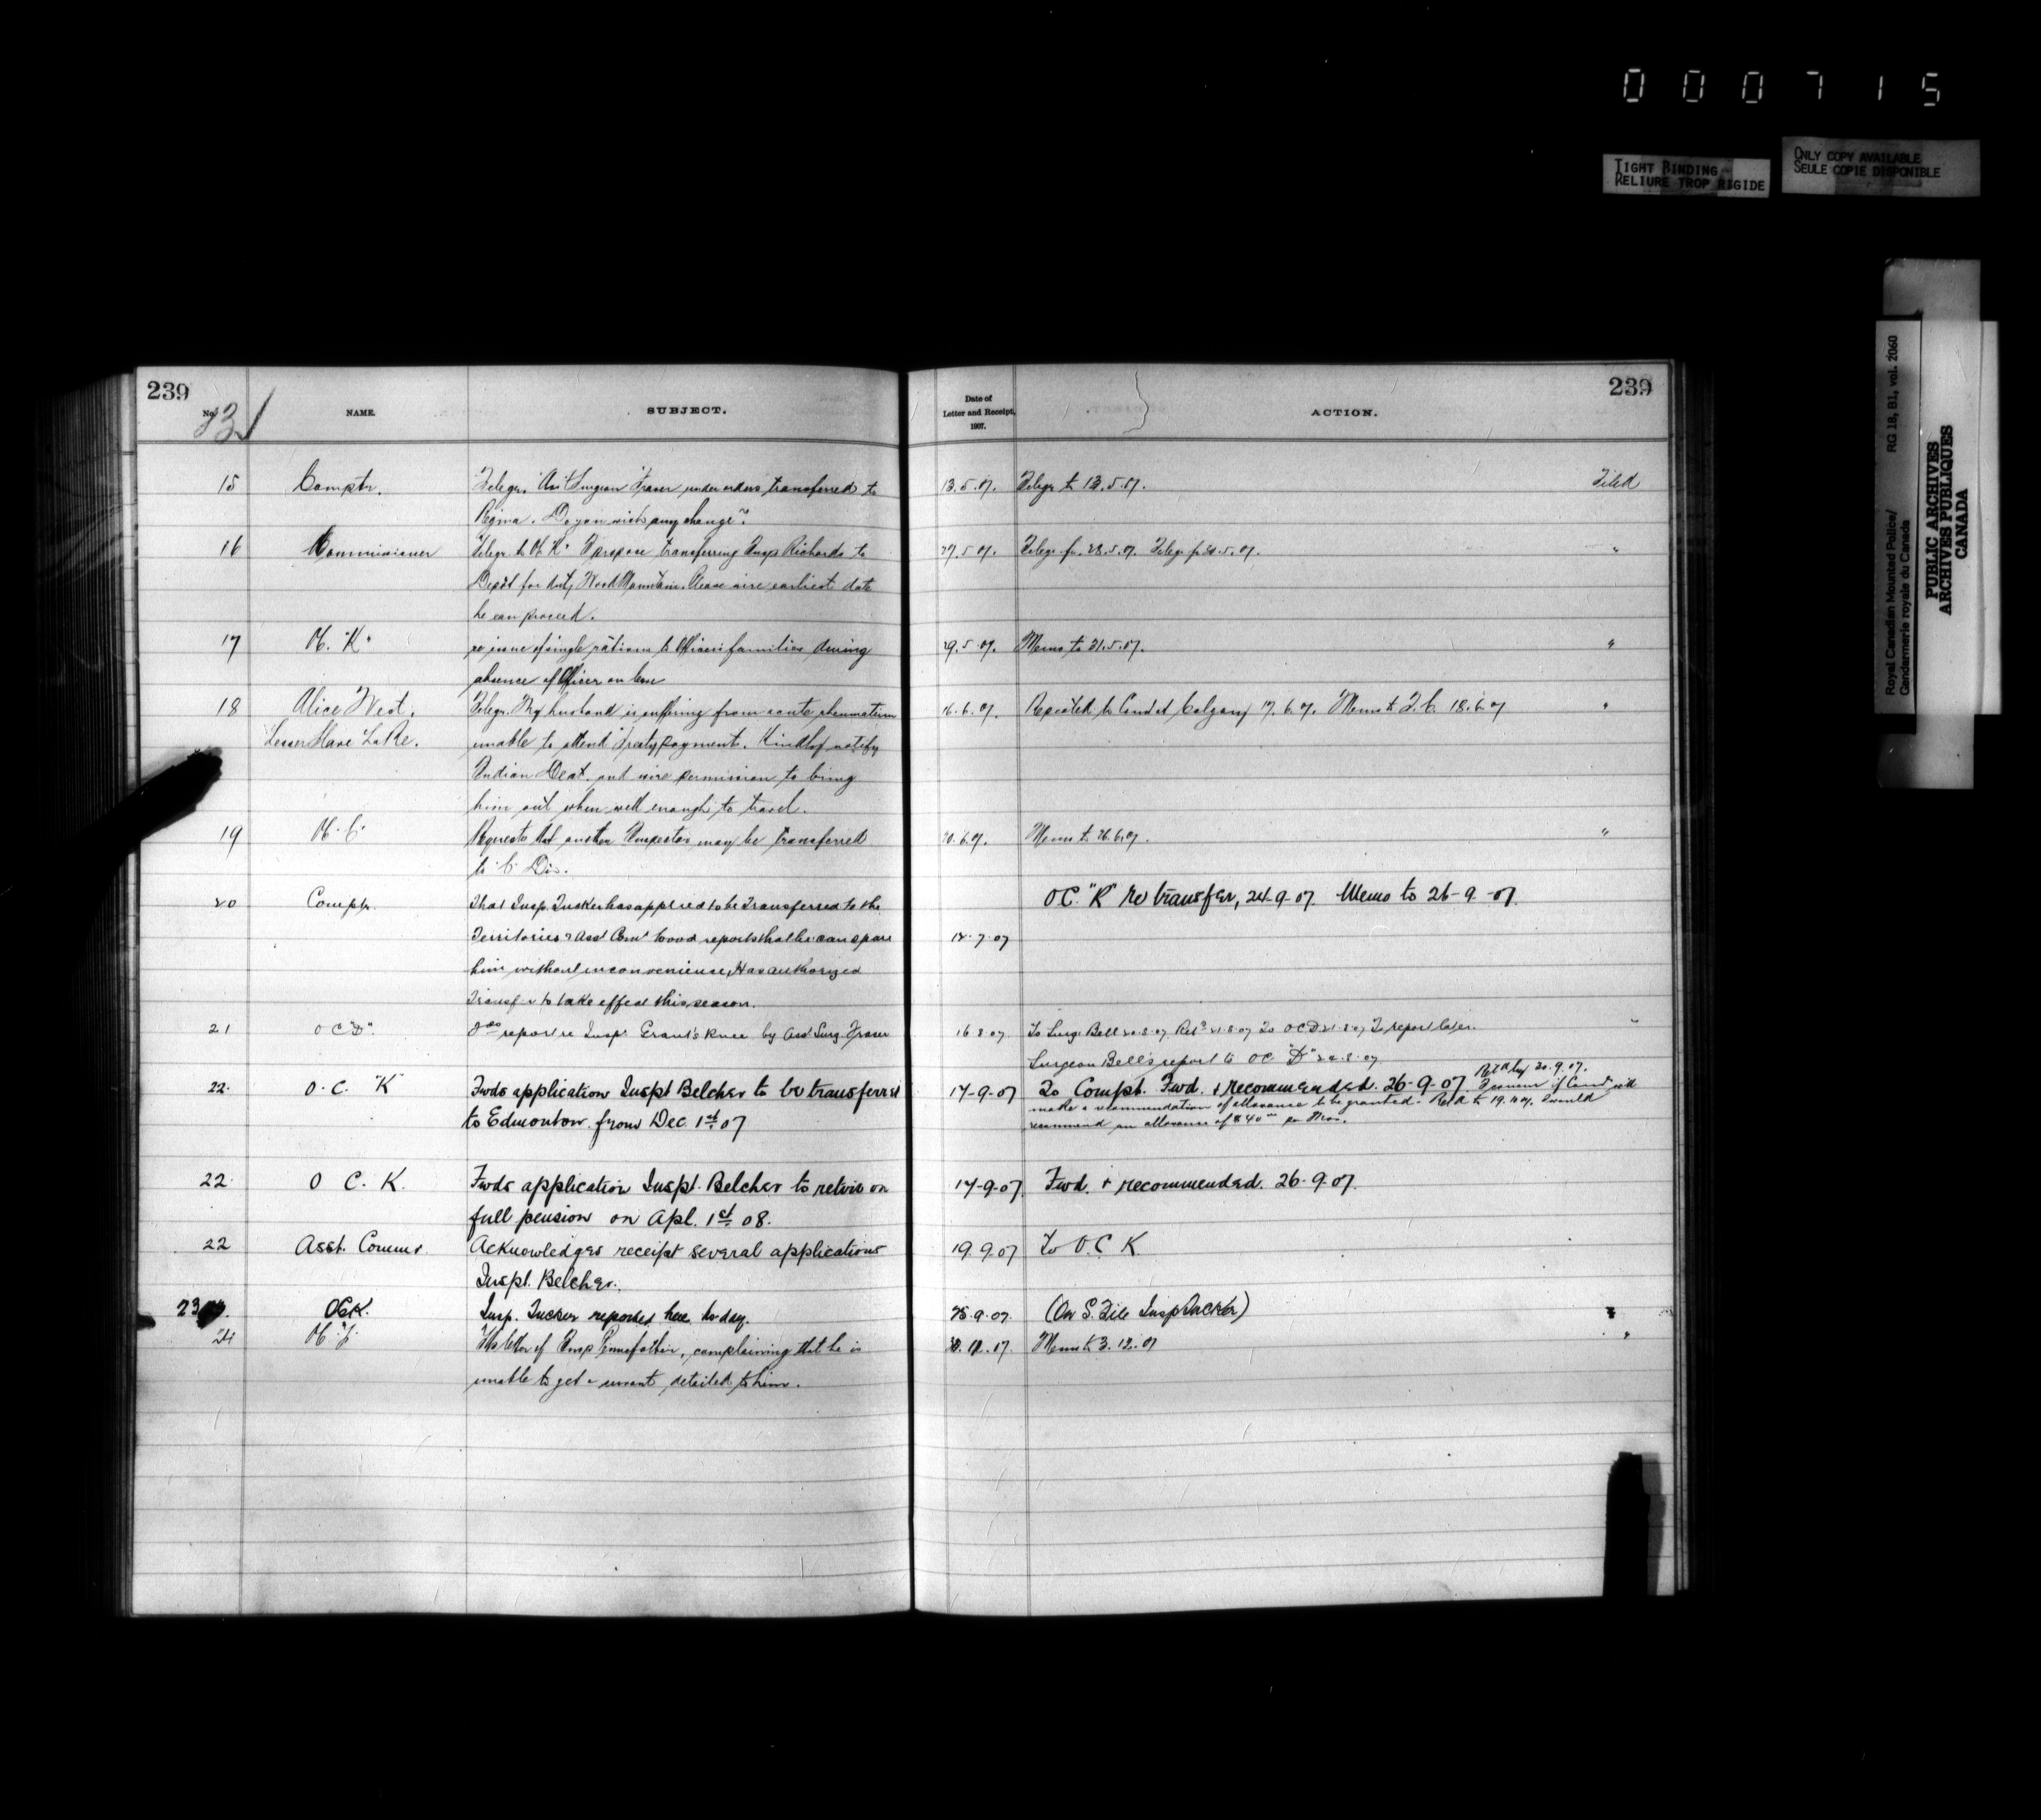 000715
TIGHT BINDING
RELIURE TROP RIGIDE
ONLY COPY AVAILABLE
SEULE COPIE DISPONIBLE
Royal Canadian Mounted Police/ RG 18, B1, vol. 2060
Gendarmerie royale du Canada
PUBLIC ARCHIVES
ARCHIVES PUBLIQUES
CANADA
239
No. NAME. SUBJECT.
15 Comptr. Telegr. Surgeon Fraser under orders transferred to
Regina. Do you wish any change?
16 Commissioner Telegr. to "K" propose transferring Insp Richards to
Depot for duty Wood Mountain. Please wire earliest date
he can proceed.
17 "K" re issue of single rations to Officers families during
absence of Officer on leave
18 Alice West. Telegr. My husband is suffering from acute rheumatism
Lesser Slave Lake. unable to attend Treaty payment. Kindly notify
Indian Dept. and wire permission to bring
him out when well enough to travel.
19 Requests that another Inspector may be transferred
to Div.
20 Comptr. That Insp. Tucker has applied to be Transferred to the
Territories & Asst Comr Wood reports that he can spare
him without inconvenience, Has authorized
Transfer to take effect this season.
21 O C "D". report re Insp. Grant's knee by Asst Surg. Fraser
22. O. C. "K" Fwds application Inspt Belcher to be transferred
to Edmonton from Dec 1st 07
22. O C. K. Fwds application Inspt. Belcher to retire on
full pension on Apl. 1st 08.
22 Asst. Commr. Acknowledges receipt several applications
Inspt. Belcher.
23 OCK. Insp. Tucker reported here to-day.
24 letter of Insp Pennefather, complaining that he is
unable to get a servant detailed to him.
239
Date of
Letter and Receipt,
1907.
ACTION.
13.5.07. Telegr to 13.5.07. Filed
27.5.07. Telegr fr. 28.5.07. Telegr fr 5.07. "
29.5.07. Memo to 31.5.07. "
16.6.07. Repeated to Calgary 17.6.07. Memo to 18.6.07 "
6.07. Memo to 26.6.07. "
OC. "K" re transfer, 24-9-07. Memo to 26-9-07.
7.07
16 8 07 To Surg. Bell 8.07. To OCD 8.07 To report later. "
Surgeon Bell's report to OC "D" 8.07
17-9-07 To Compt. Fwd. & recommended. 26-9-07. 9.07.
make a recommendation of allowance to be granted. I would
recommend an allowance of $40
17-9-07 Fwd. & recommended. 26.9.07.
19.9.07 To O.C K
25.9.07. (On S. File Insp Tucker) "
Memo to 3.12.07 "